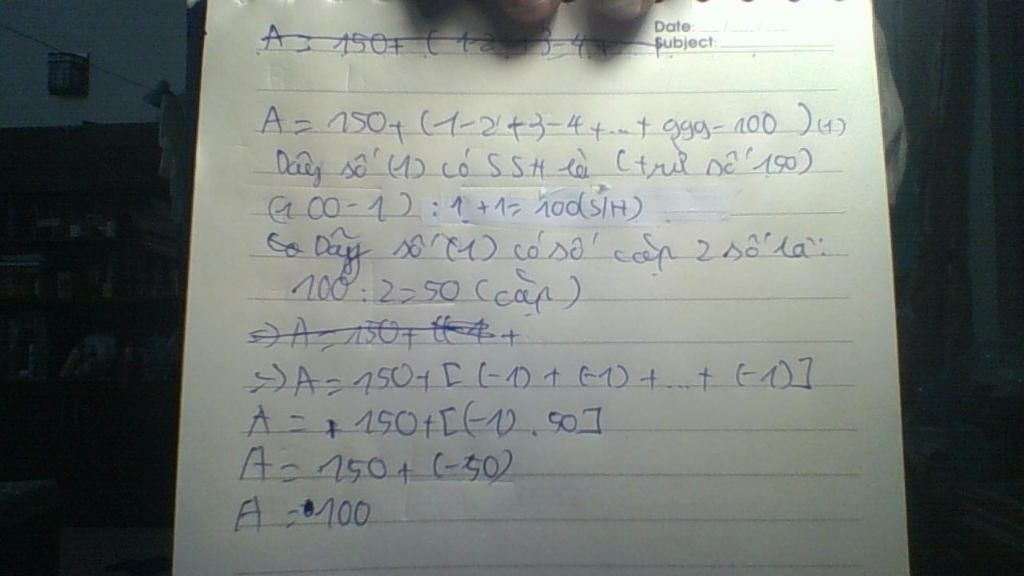 A = 150 + ( 1-2 + 3-4 +
Date:
Subject:
A = 150 + ( 1-2 + 3-4 + ... + 999 - 100 ) (1)
Dãy số (1) có SSH là (trừ số 150)
(100 - 1) : 1 + 1 = 100(S/H)
Dãy số (1) có số cặp 2 số là:
100 : 2 = 50 (cặp)
=> A = 150 + +
=> A = 150 + [ (-1) + (-1) + ... + (-1) ]
A = 150 + [(-1) . 50]
A = 150 + (-50)
A = 100